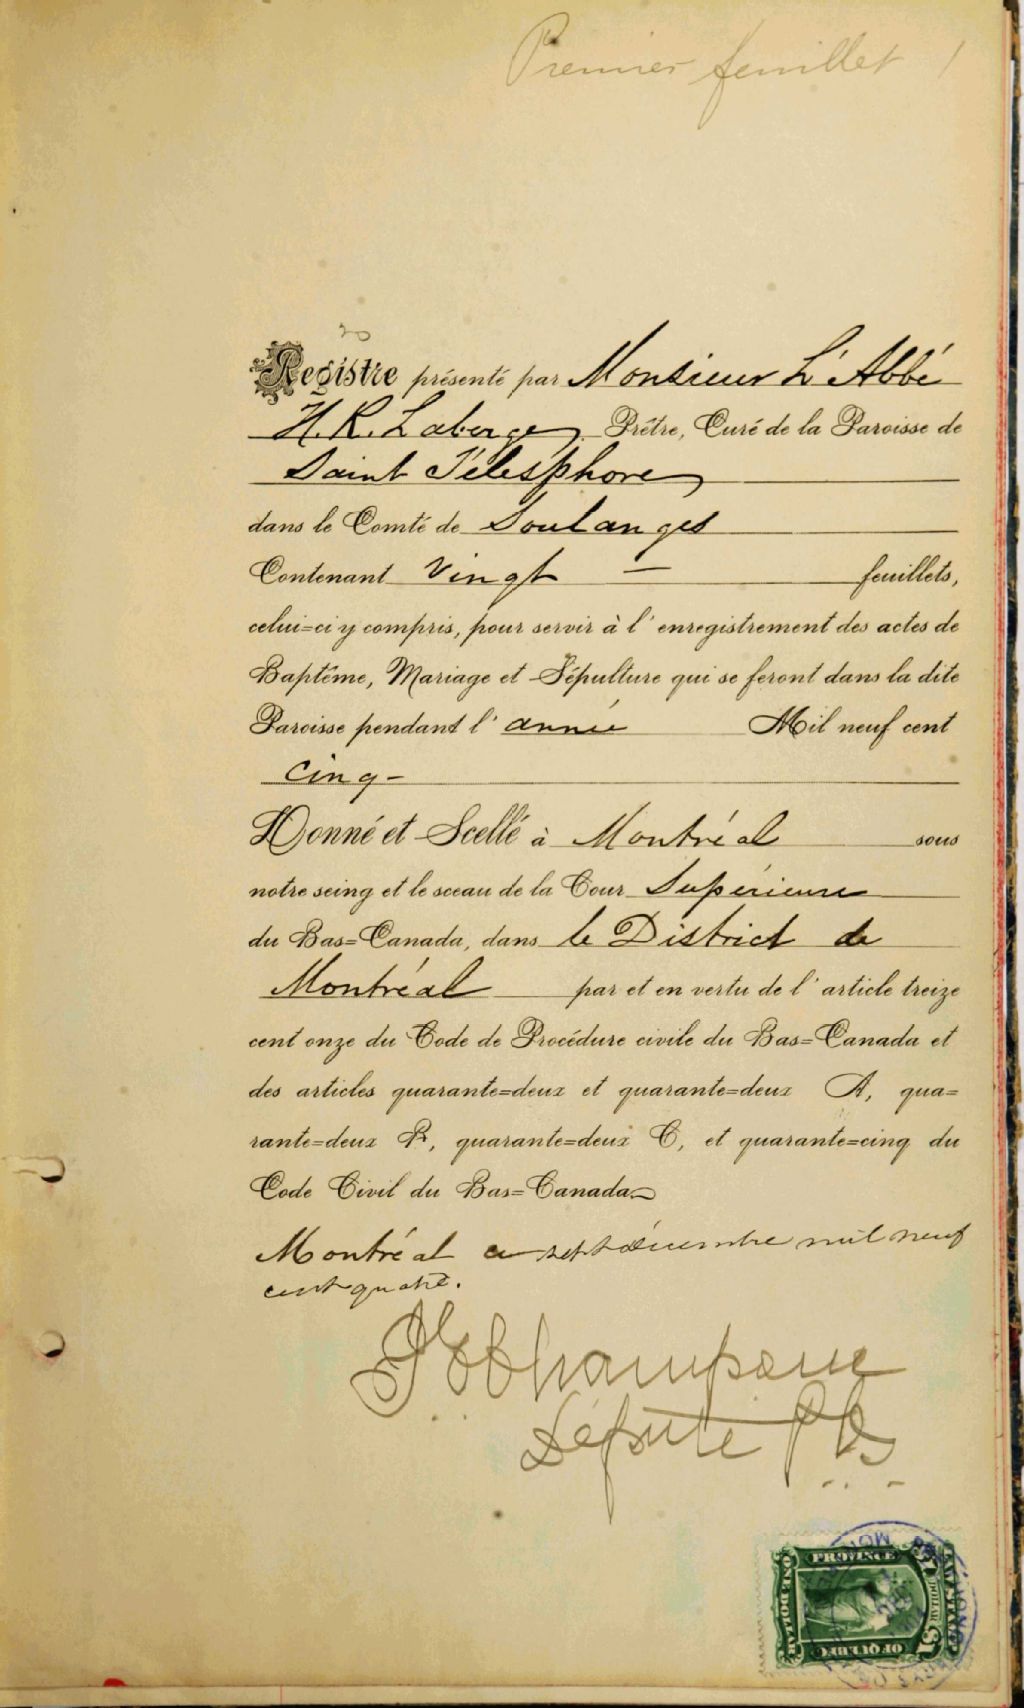 Premier feuillet 1
Registre présenté par Monsieur L'Abbé
H. R. Laberge, Prêtre, Curé de la Paroisse de
Saint Télesphore
dans le Comté de Soulanges
Contenant vingt — feuillets,
celui=ci y compris, pour servir à l'enregistrement des actes de
Baptême, Mariage et Sépulture qui se feront dans la dite
Paroisse pendant l'année Mil neuf cent
cinq -
Donné et Scellé à Montréal sous
notre seing et le sceau de la Cour Supérieure
du Bas=Canada, dans le District de
Montréal par et en vertu de l'article treize
cent onze du Code de Procédure civile du Bas=Canada et
des articles quarante=deux et quarante=deux A, qua=
rante=deux B, quarante=deux C, et quarante=cinq du
Code Civil du Bas=Canada.
Montréal ce sept décembre mil neuf
cent quatre.
Champagne
Député P
PROVINCE
OF QUEBEC
ONE DOLLAR
LAW STAMP
$1
DOLLAR